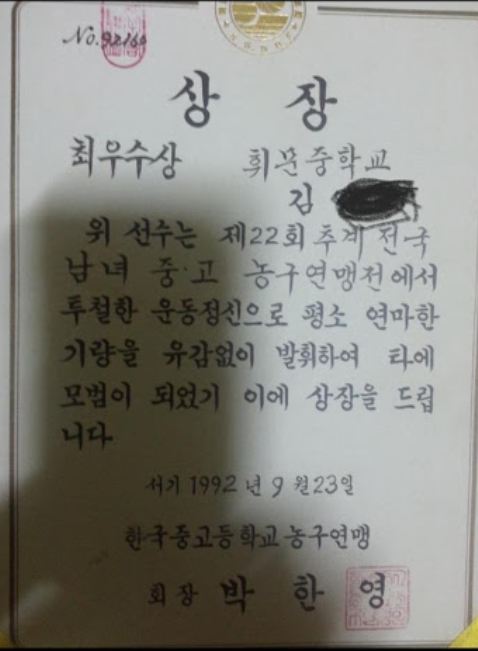 No.92160
상 장
최우수상 휘문중학교
김
위 선수는 제22회 추계 전국
남녀 중·고 농구연맹전에서
투철한 운동정신으로 평소 연마한
기량을 유감없이 발휘하여 타에
모범이 되었기 이에 상장을 드립
니다
서기 1992년 9월 23일
한국중고등학교농구연맹
회장 박 한 영